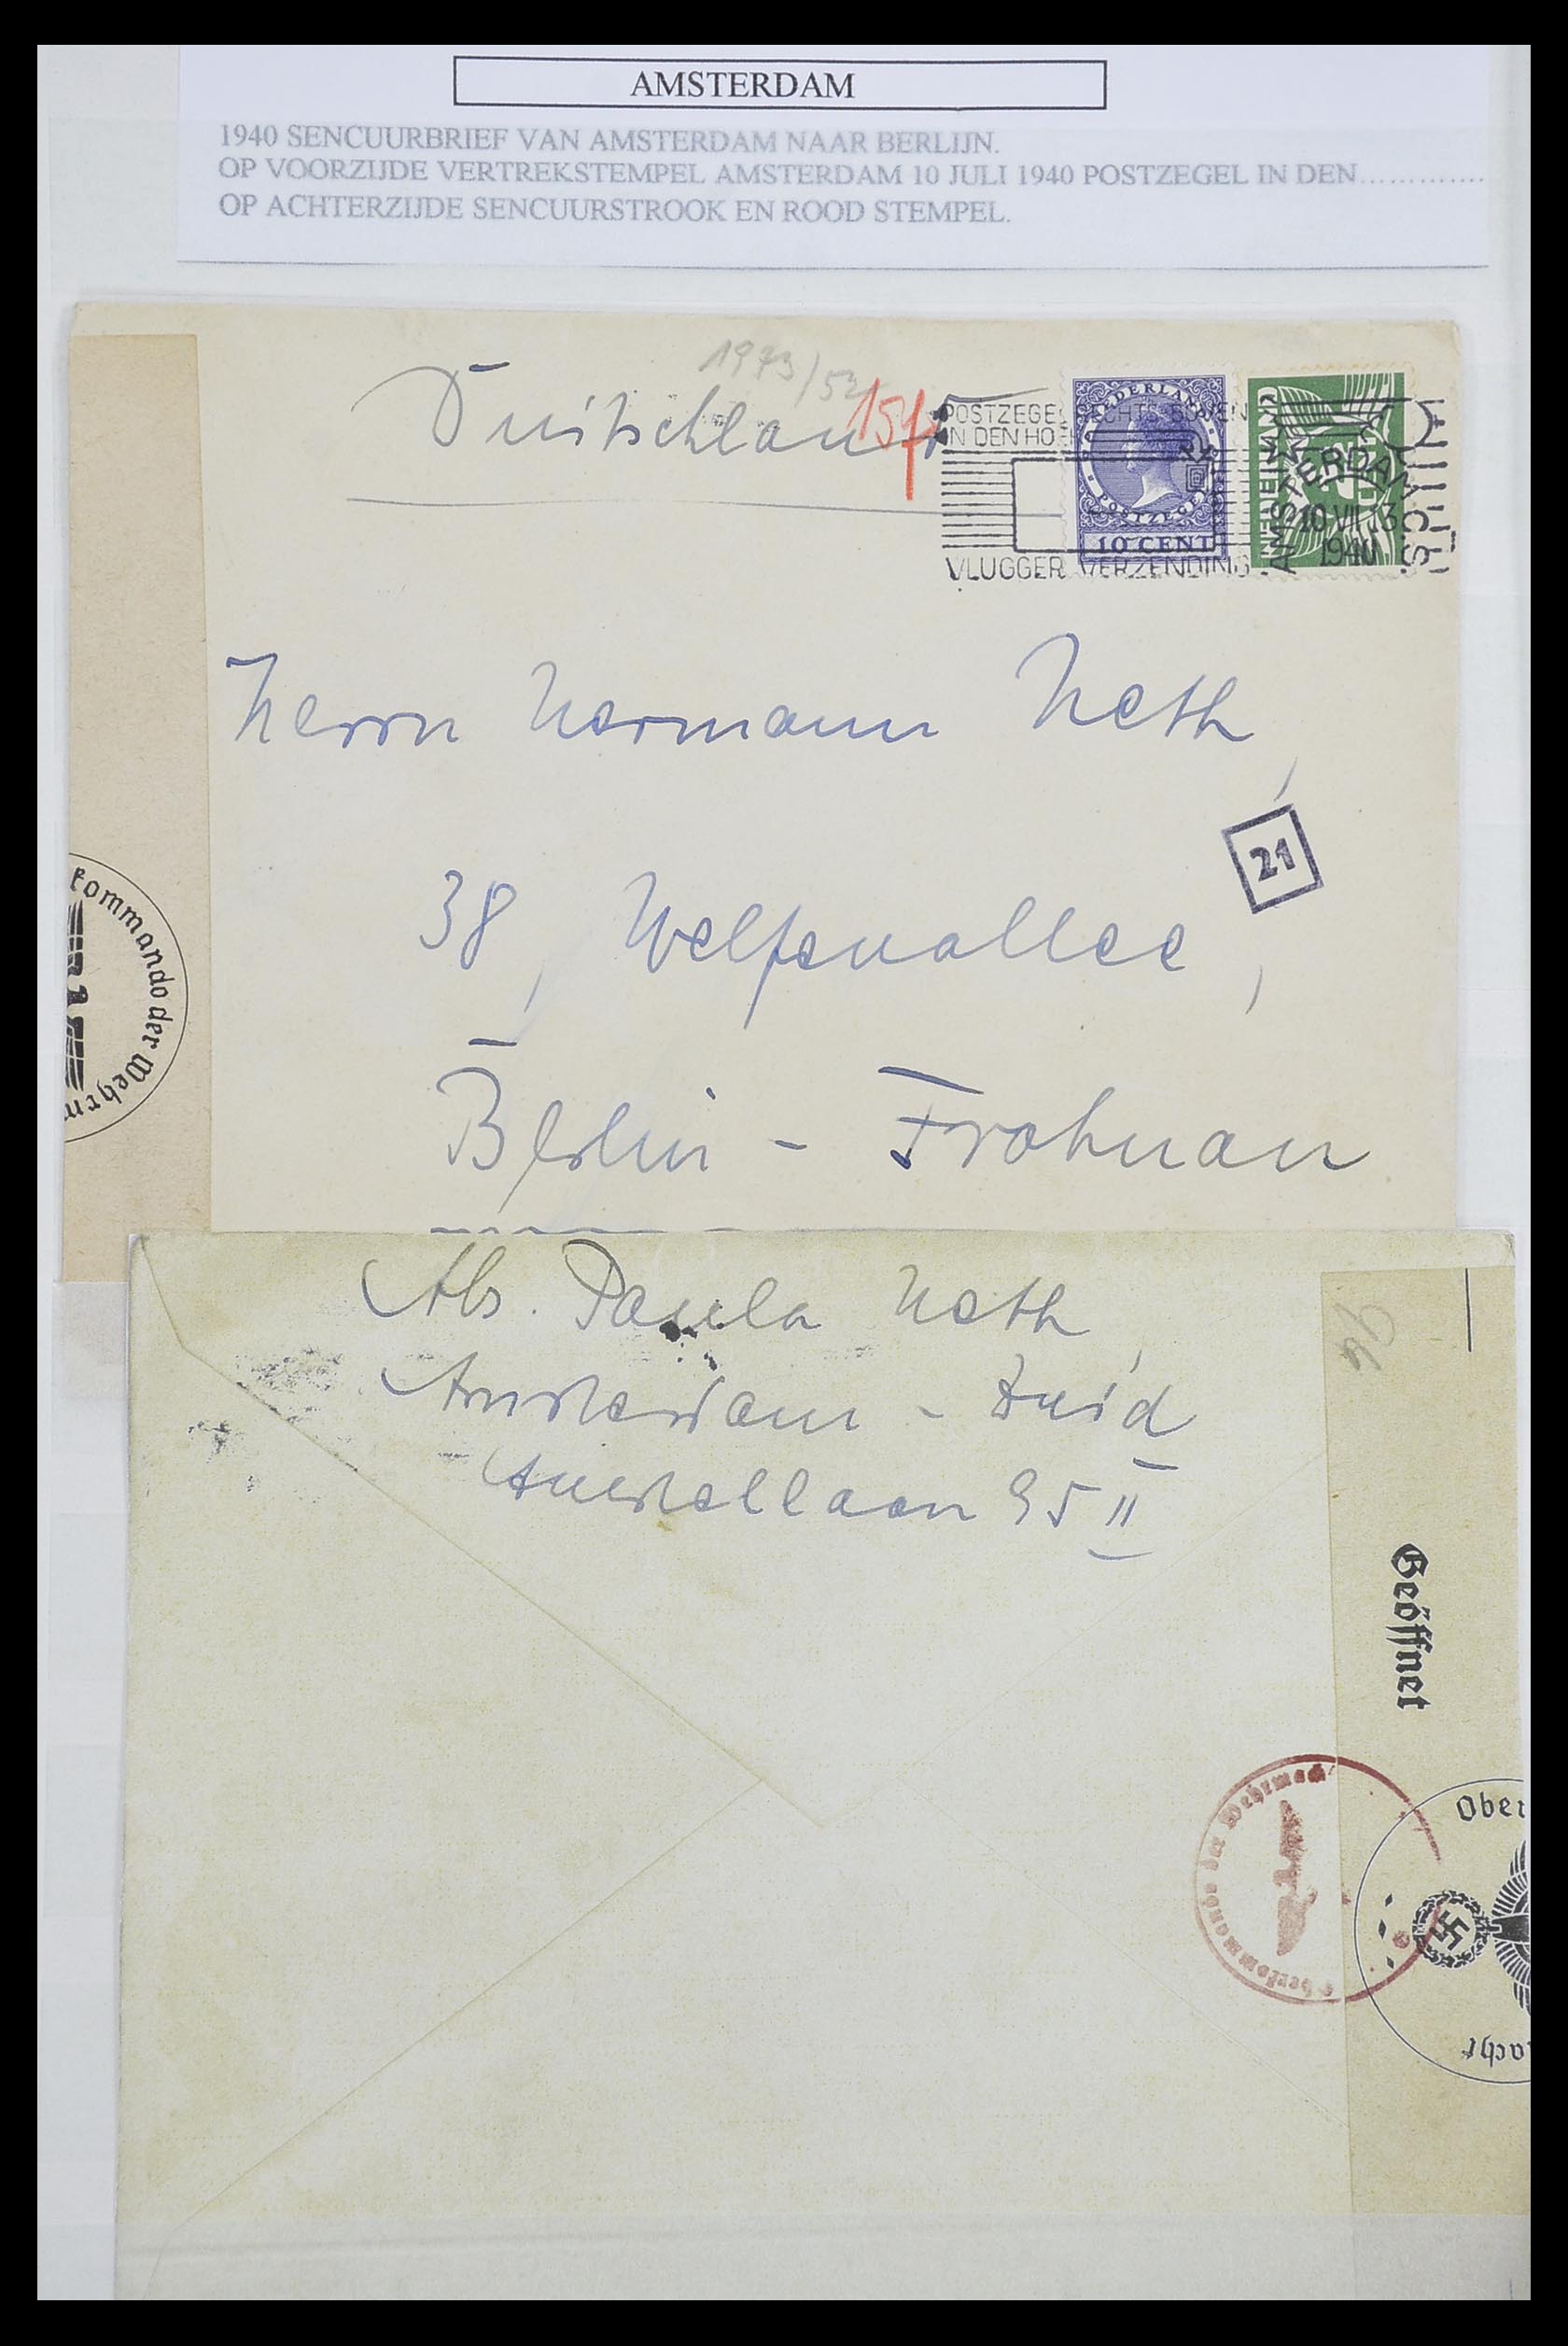 AMSTERDAM
1940 SENCUURBRIEF VAN AMSTERDAM NAAR BERLIJN.
OP VOORZIJDE VERTREKSTEMPEL AMSTERDAM 10 JULI 1940 POSTZEGEL IN DEN.............
OP ACHTERZIJDE SENCUURSTROOK EN ROOD STEMPEL.
1973/52
Duitschland
15f
POSTZEGEL RECHTS BOVEN
IN DEN HOEK
VLUGGER VERZENDING
NEDERLAND
POSTZEGEL
10 CENT
NEDERLAND
AMSTERDAM
10 VII 13
1940
Herrn Hermann Neth,
21
38, Welfenallee,
Berlin - Frohnau
kommando der Wehrm
Abs. Paula Neth,
Amsterdam - Zuid
Amstellaan 95 II
Geöffnet
Oberkommando der Wehrmacht
Ober
acht